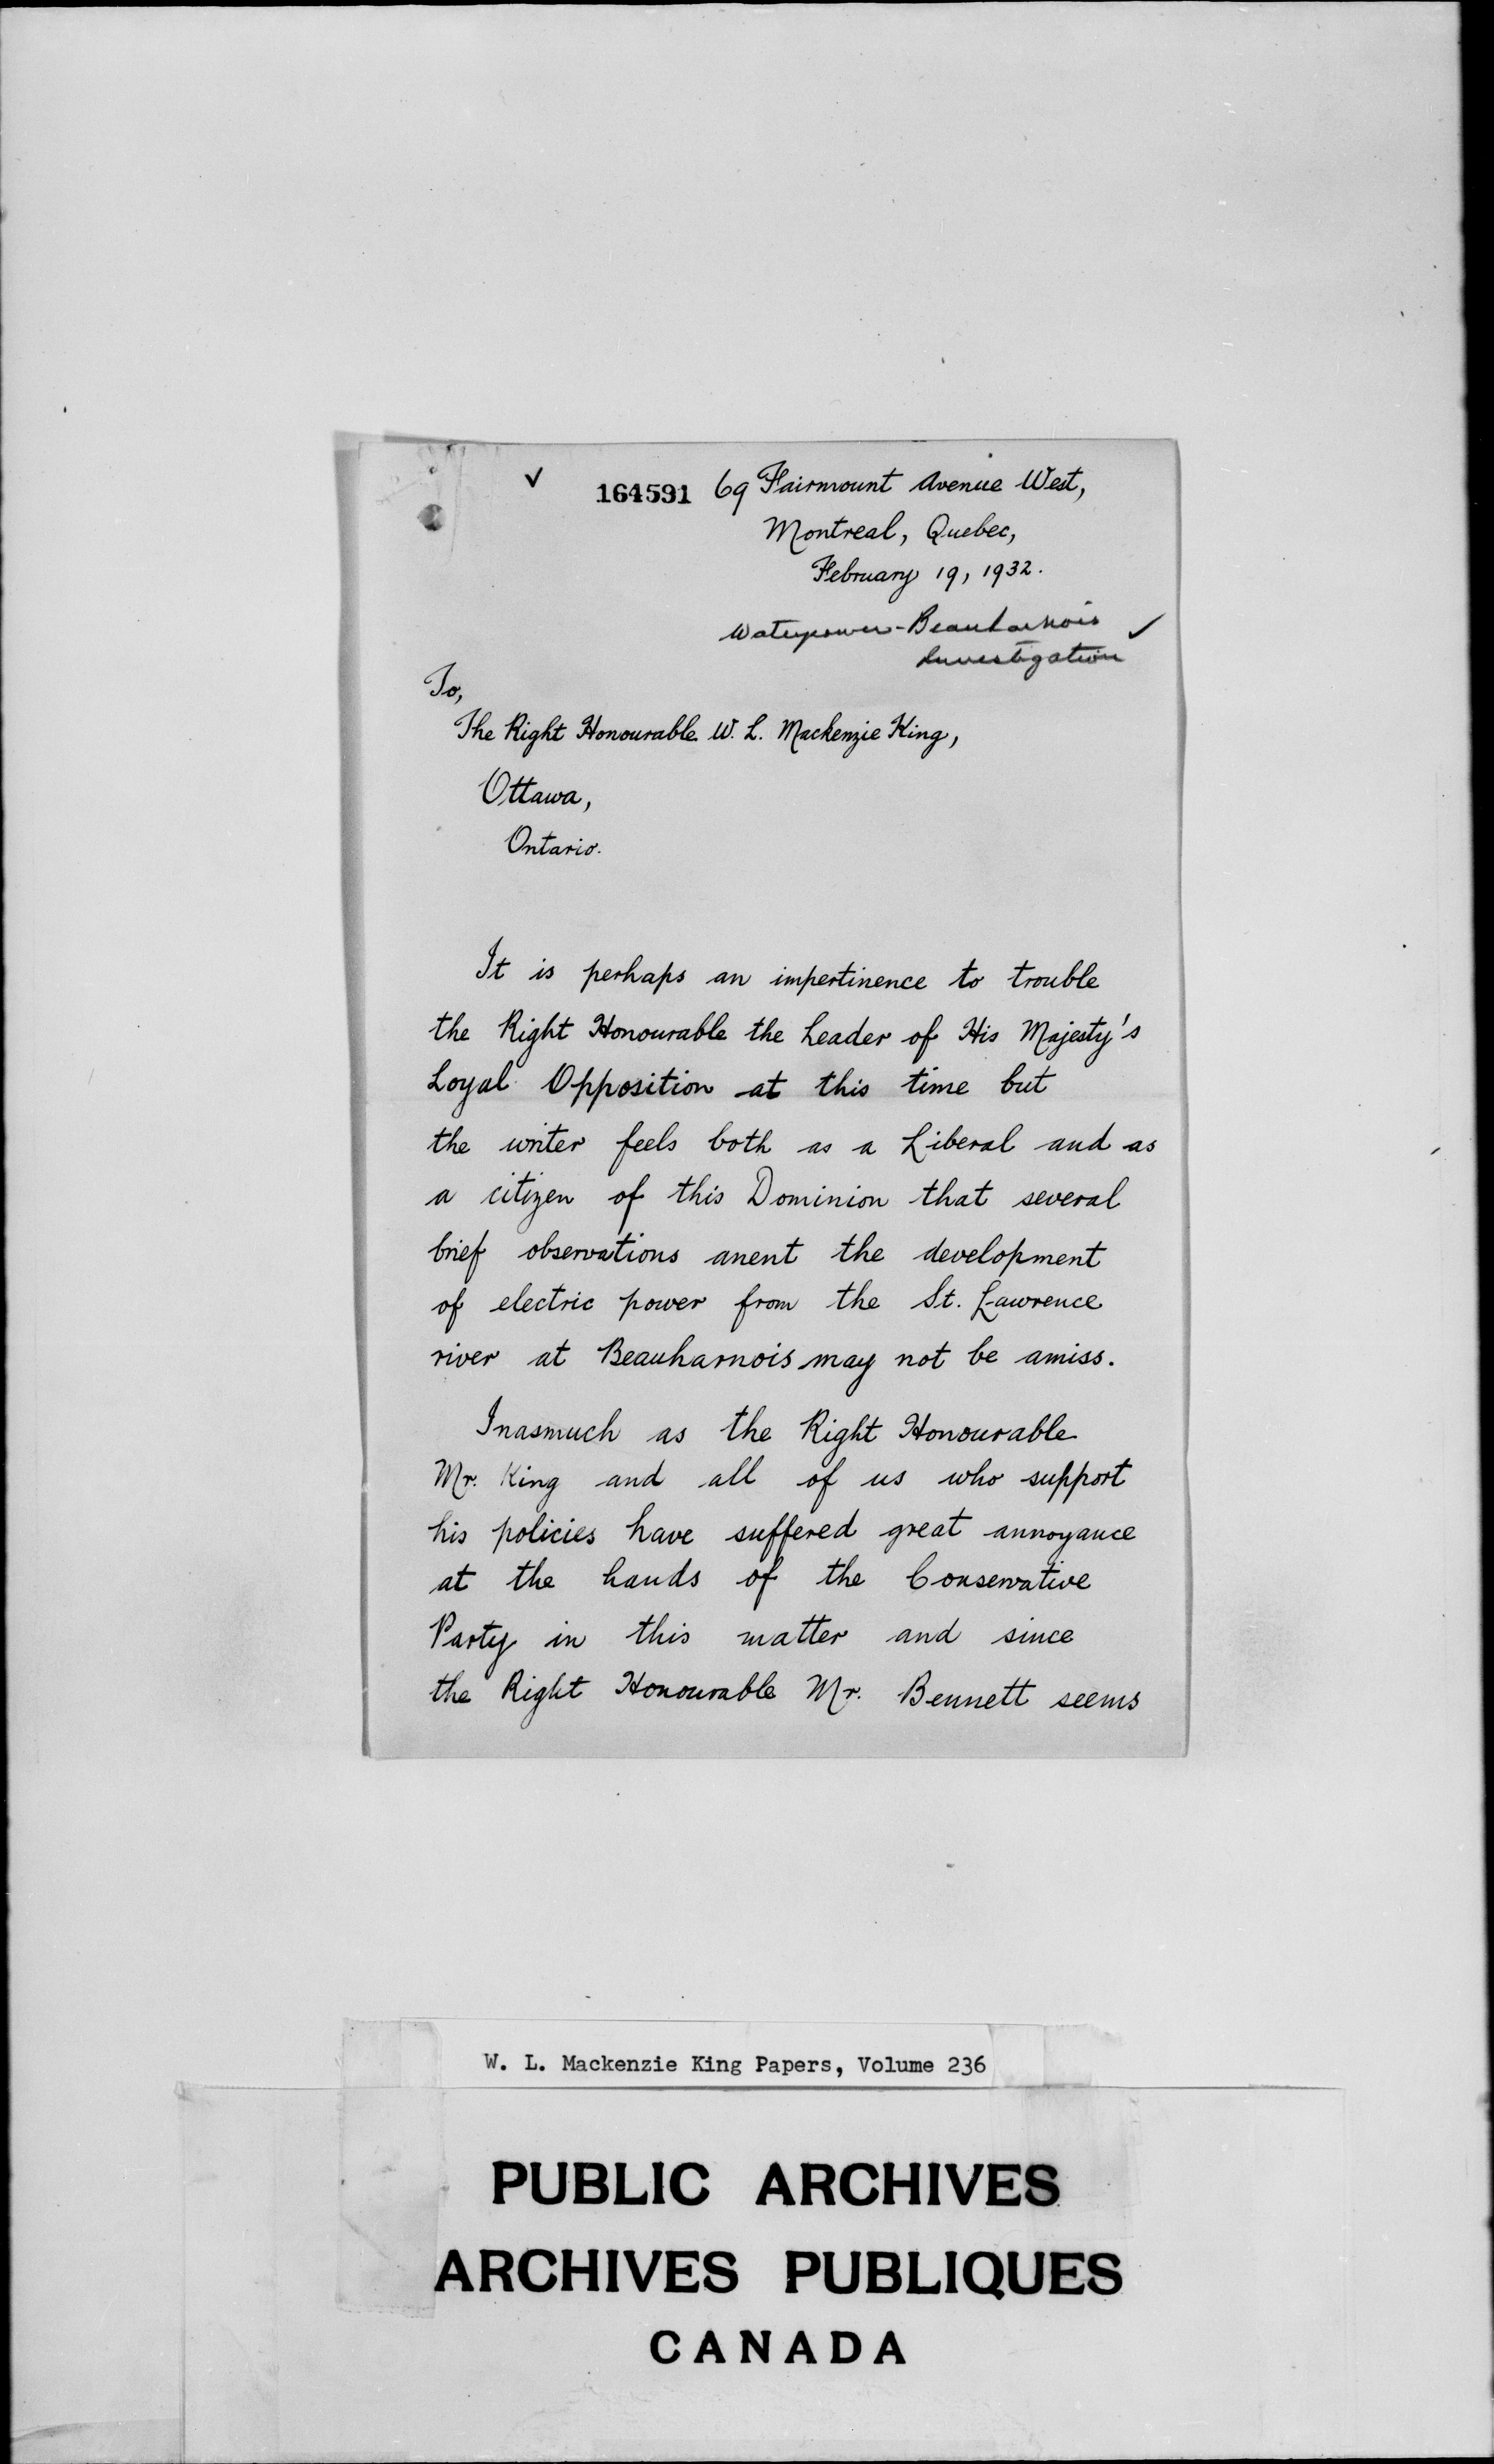 ✓ 164591 69 Fairmount Avenue West,
Montreal, Quebec,
February 19, 1932.
Waterpower-Beauharnois ✓
Investigation
To,
The Right Honourable W. L. Mackenzie King,
Ottawa,
Ontario.
It is perhaps an impertinence to trouble
the Right Honourable the Leader of His Majesty's
Loyal Opposition at this time but
the writer feels both as a Liberal and as
a citizen of this Dominion that several
brief observations anent the development
of electric power from the St. Lawrence
river at Beauharnois may not be amiss.
Inasmuch as the Right Honourable
Mr. King and all of us who support
his policies have suffered great annoyance
at the hands of the Conservative
Party in this matter and since
the Right Honourable Mr. Bennett seems
W. L. Mackenzie King Papers, Volume 236
PUBLIC ARCHIVES
ARCHIVES PUBLIQUES
CANADA